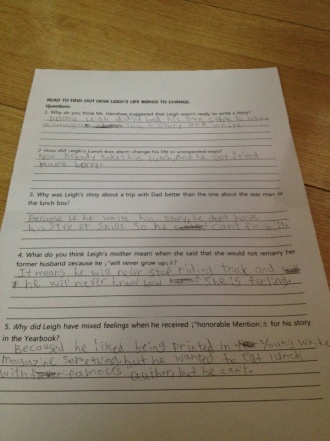 READ TO FIND OUT HOW LEIGH'S LIFE BEINGS TO CHANGE.
Questions:
1. Why do you think Mr. Henshaw suggested that Leigh wasn't ready to write a story?
Leigh didn't had his own
a story
2. How did Leigh's Lunch box alarm change his life in unexpected ways?
Now nobody takes his lunch and he got friend
name Barry.
3. Why was Leigh's story about a trip with Dad better than the one about the wax man or
the lunch box!
Because if he write his story, he don't have
his skills so he can't finish
4. What do you think Leigh's mother meant when she said that she would not remarry her
former husband because he ¡°will never grow up¡±?
It means he will never stop riding truck and
he will never know how she is feeling.
5. Why did Leigh have mixed feelings when he received ¡°honorable Mention¡± for his story
in the Yearbook?
Becaused he liked being printed in Young Write
magazine something but he wanted to eat lunch
with famous author but he can't.